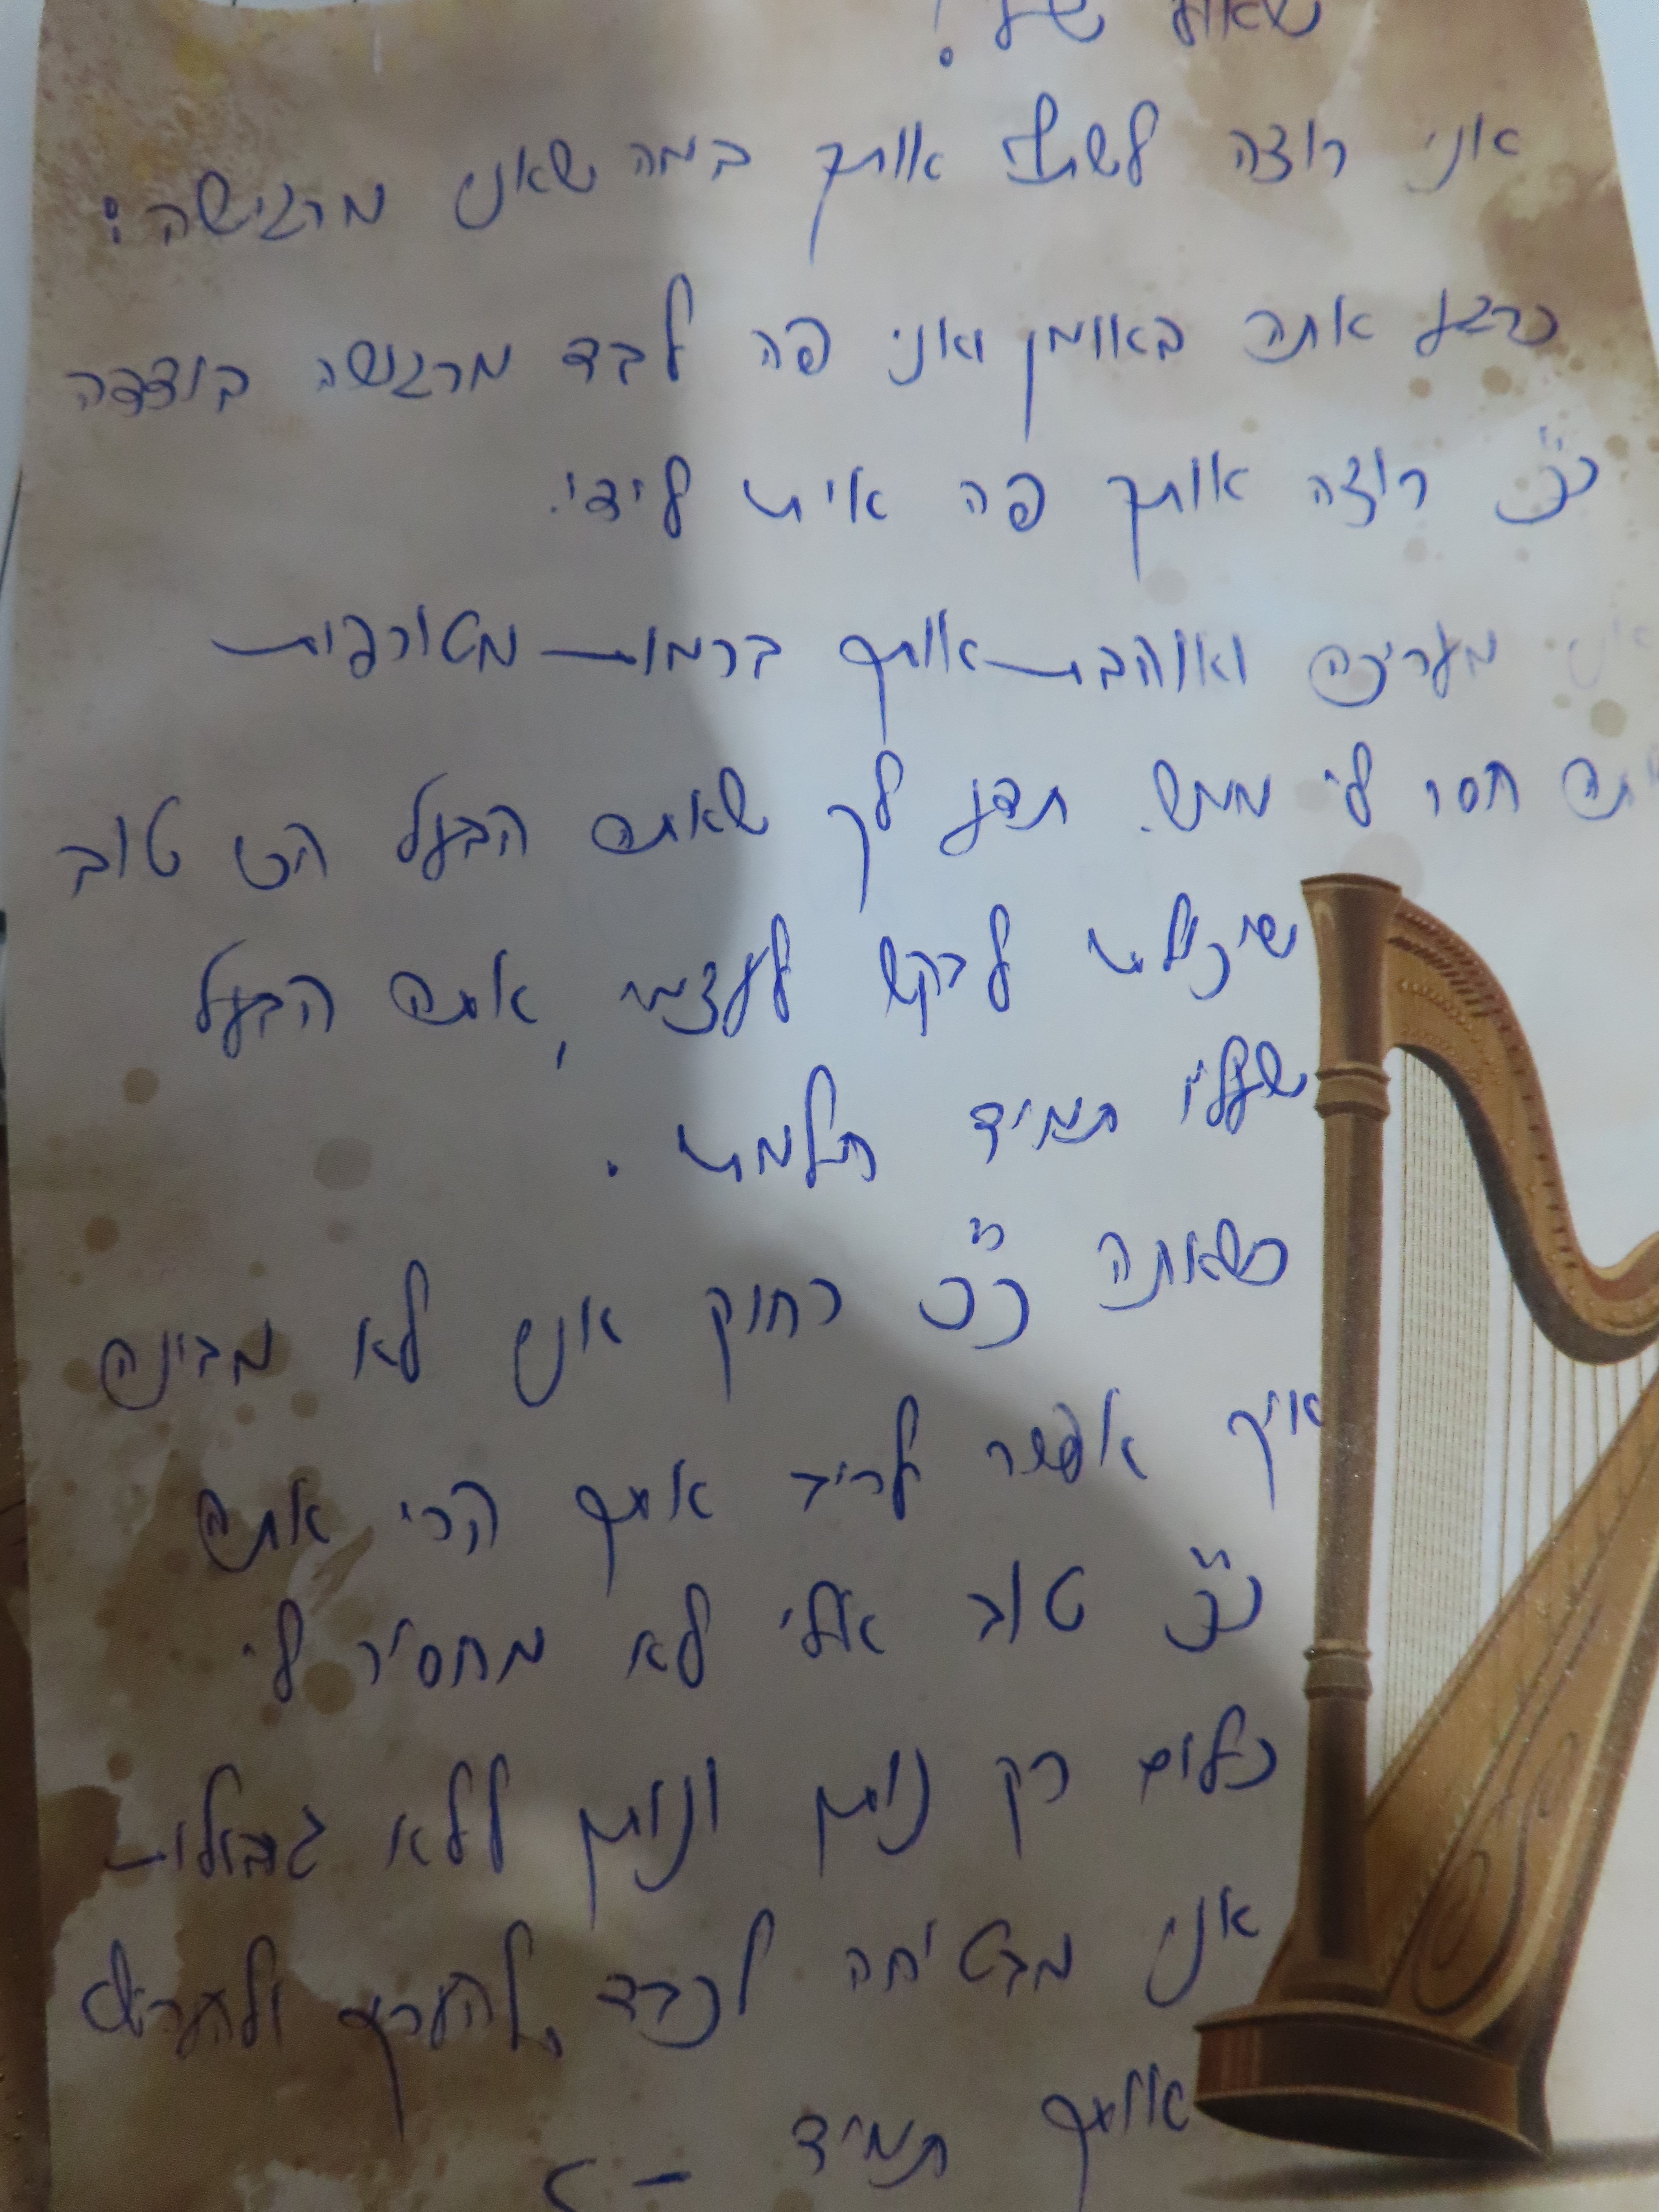 שאול שלי!
אני רוצה לשתף אותך במה שאני מרגישה:
כרגע אתה באומן ואני פה לבד מרגישה בודדה
כ"כ רוצה אותך פה איתי לידי.
אני מעריכה ואוהבת אותך ברמות מטורפות
אתה חסר לי ממש. תדע לך שאתה הבעל הכי טוב
שיכולתי לבקש לעצמי, אתה הבעל
שעליו תמיד חלמתי.
כשאתה כ"כ רחוק אני לא מבינה
איך אפשר לריב איתך הרי אתה
כ"כ טוב אלי לא מחסיר לי
כלום רק נותן ונותן ללא גבולות
אני מבטיחה לכבד, להעריך
אותך תמיד -